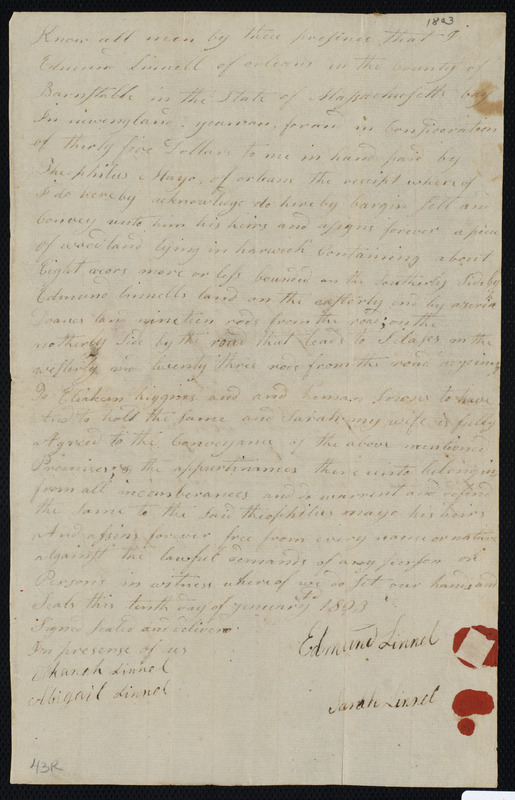 1803
Know all men by these presince that I
Edmund Linnell of orleans in the County of
Barnstable in the State of Massachusetts bay
In newengland yeaman for and in Consideration
of thirty five Dollars to me in hand paid by
Theophilus Mayo of orleans the receipt where of
I do hereby acknowledge do hereby bargin sell and
Convey unto him his heirs and assigns forever a piece
of woodland lying in harwich Containing about
Eight acors more or less bounded on the Southerly Side by
Edmund linnells land on the easterly end by
Doanes land nineteen rods from the road; on the
notherly Side by the road that leads to on the
westerly end twenty three rods from the road
To Eliakim higgins and and heman Snows to have
And to hold the same and Sarah my wife is fully
Agreed to the Conveyance of the above mentioned
Promises; & the appurtinances there unto belonging
from all incumberances and do warrent and defend
the same to the said theophilus mayo his heirs
And assins forever free from every name or nature
against the lawful demands of any person or
Persons in witness where of we do set our hands and
Seals this tenth day of jenuary 1803
Signd sealed and deliver
In presense of us
Linnel
Abigail Linnel
Edmund Linnel
Sarah Linnel
43R